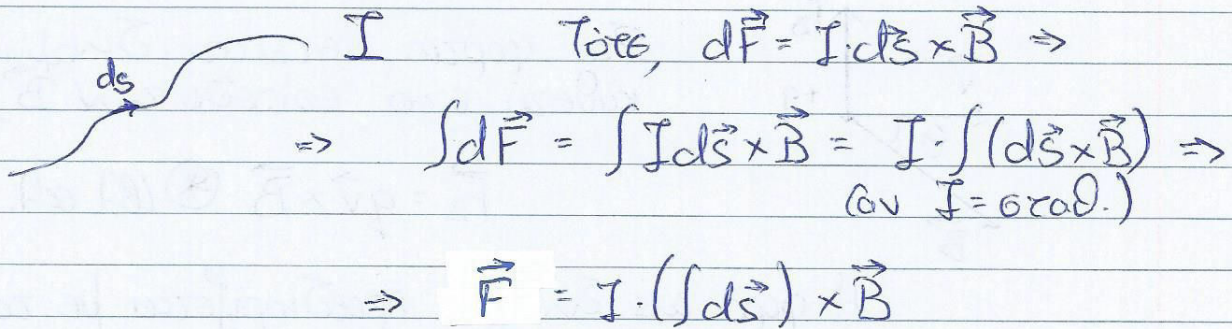 I Τότε, d\vec{F} = I·d\vec{s} × \vec{B} ⇒
ds
⇒ ∫d\vec{F} = ∫Id\vec{s} × \vec{B} = I·∫(d\vec{s} × \vec{B}) ⇒
(αν I = σταθ.)
⇒ \vec{F} = I·(∫d\vec{s}) × \vec{B}